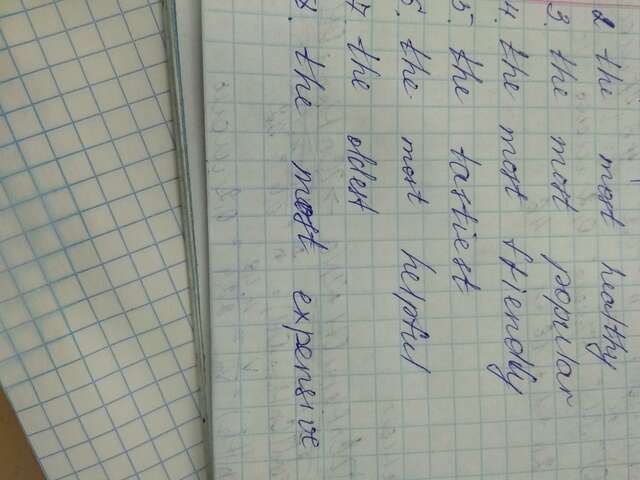 2 the most healthy
3. the most popular
4. the most friendly
5. the tastiest
6. the most helpful
7 the oldest
8. the most expensive